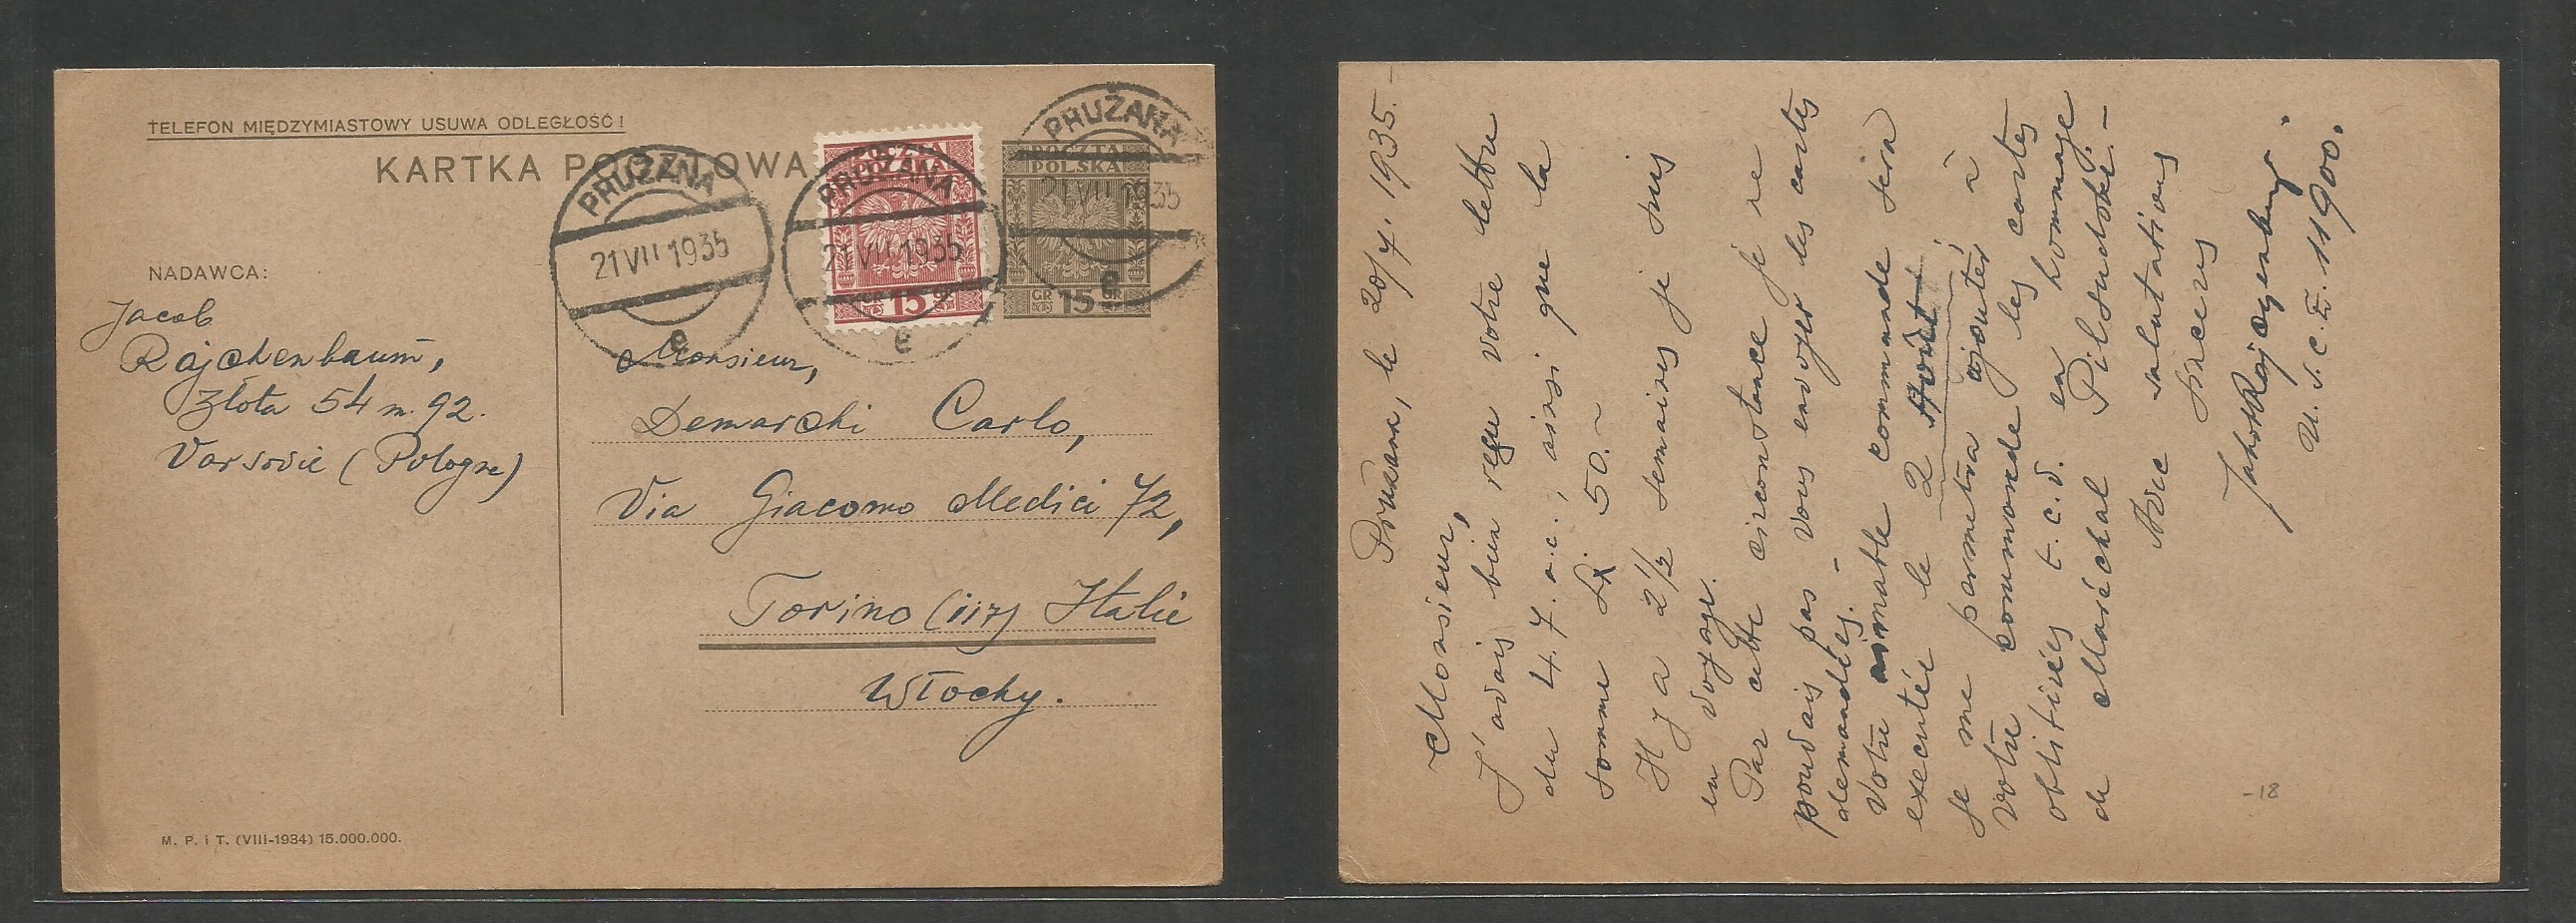 TELEFON MIĘDZYMIASTOWY USUWA ODLEGŁOŚĆ!
KARTKA POCZTOWA
PRUŻANA
21 VII 1935
e
PRUŻANA
21 VII 1935
e
PRUŻANA
21 VII 1935
e
POCZTA
POLSKA
GR 15 GR
POCZTA
POLSKA
GR 15 GR
NADAWCA:
Jacob
Rajchenbaum,
Złota 54 m. 92.
Varsovie (Pologne)
Monsieur,
Demarchi Carlo,
Via Giacomo Medici 72,
Torino (117) Italie
Włochy.
M. P. i T. (VIII-1934) 15.000.000.
Pružana, le 20/7. 1935.-
Monsieur,
J'avais bien reçu votre lettre
du 4.7. a.c., ainsi que la
somme 50.-
Il y a 2½ semaines je suis
en voyage.
Par cette circonstance je ne
pouvais pas vous envoyer les cartes
demandées. -
Votre aimable commande sera
executée le 2 Août!
Je me permettra ajouter à
votre commande les cartes
oblitirées t.c.v. en hommage
de Maréchal Piłsudski.-
Avec salutations
sinceres
U.S.C.E. 11900.
-18